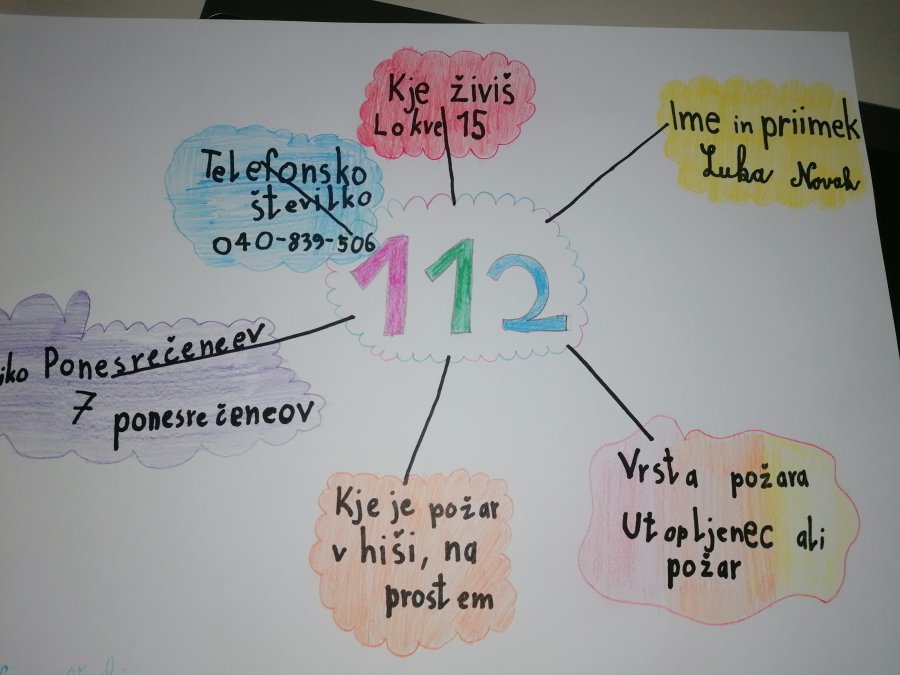 Kje živiš
Lokve 15
Ime in priimek
Luka Novak
Telefonsko
številko
040-839-506
112
iko Ponesrečencev
7 ponesrečencov
Kje je požar
v hiši, na
prostem
Vrsta požara
Utopljenec ali
požar